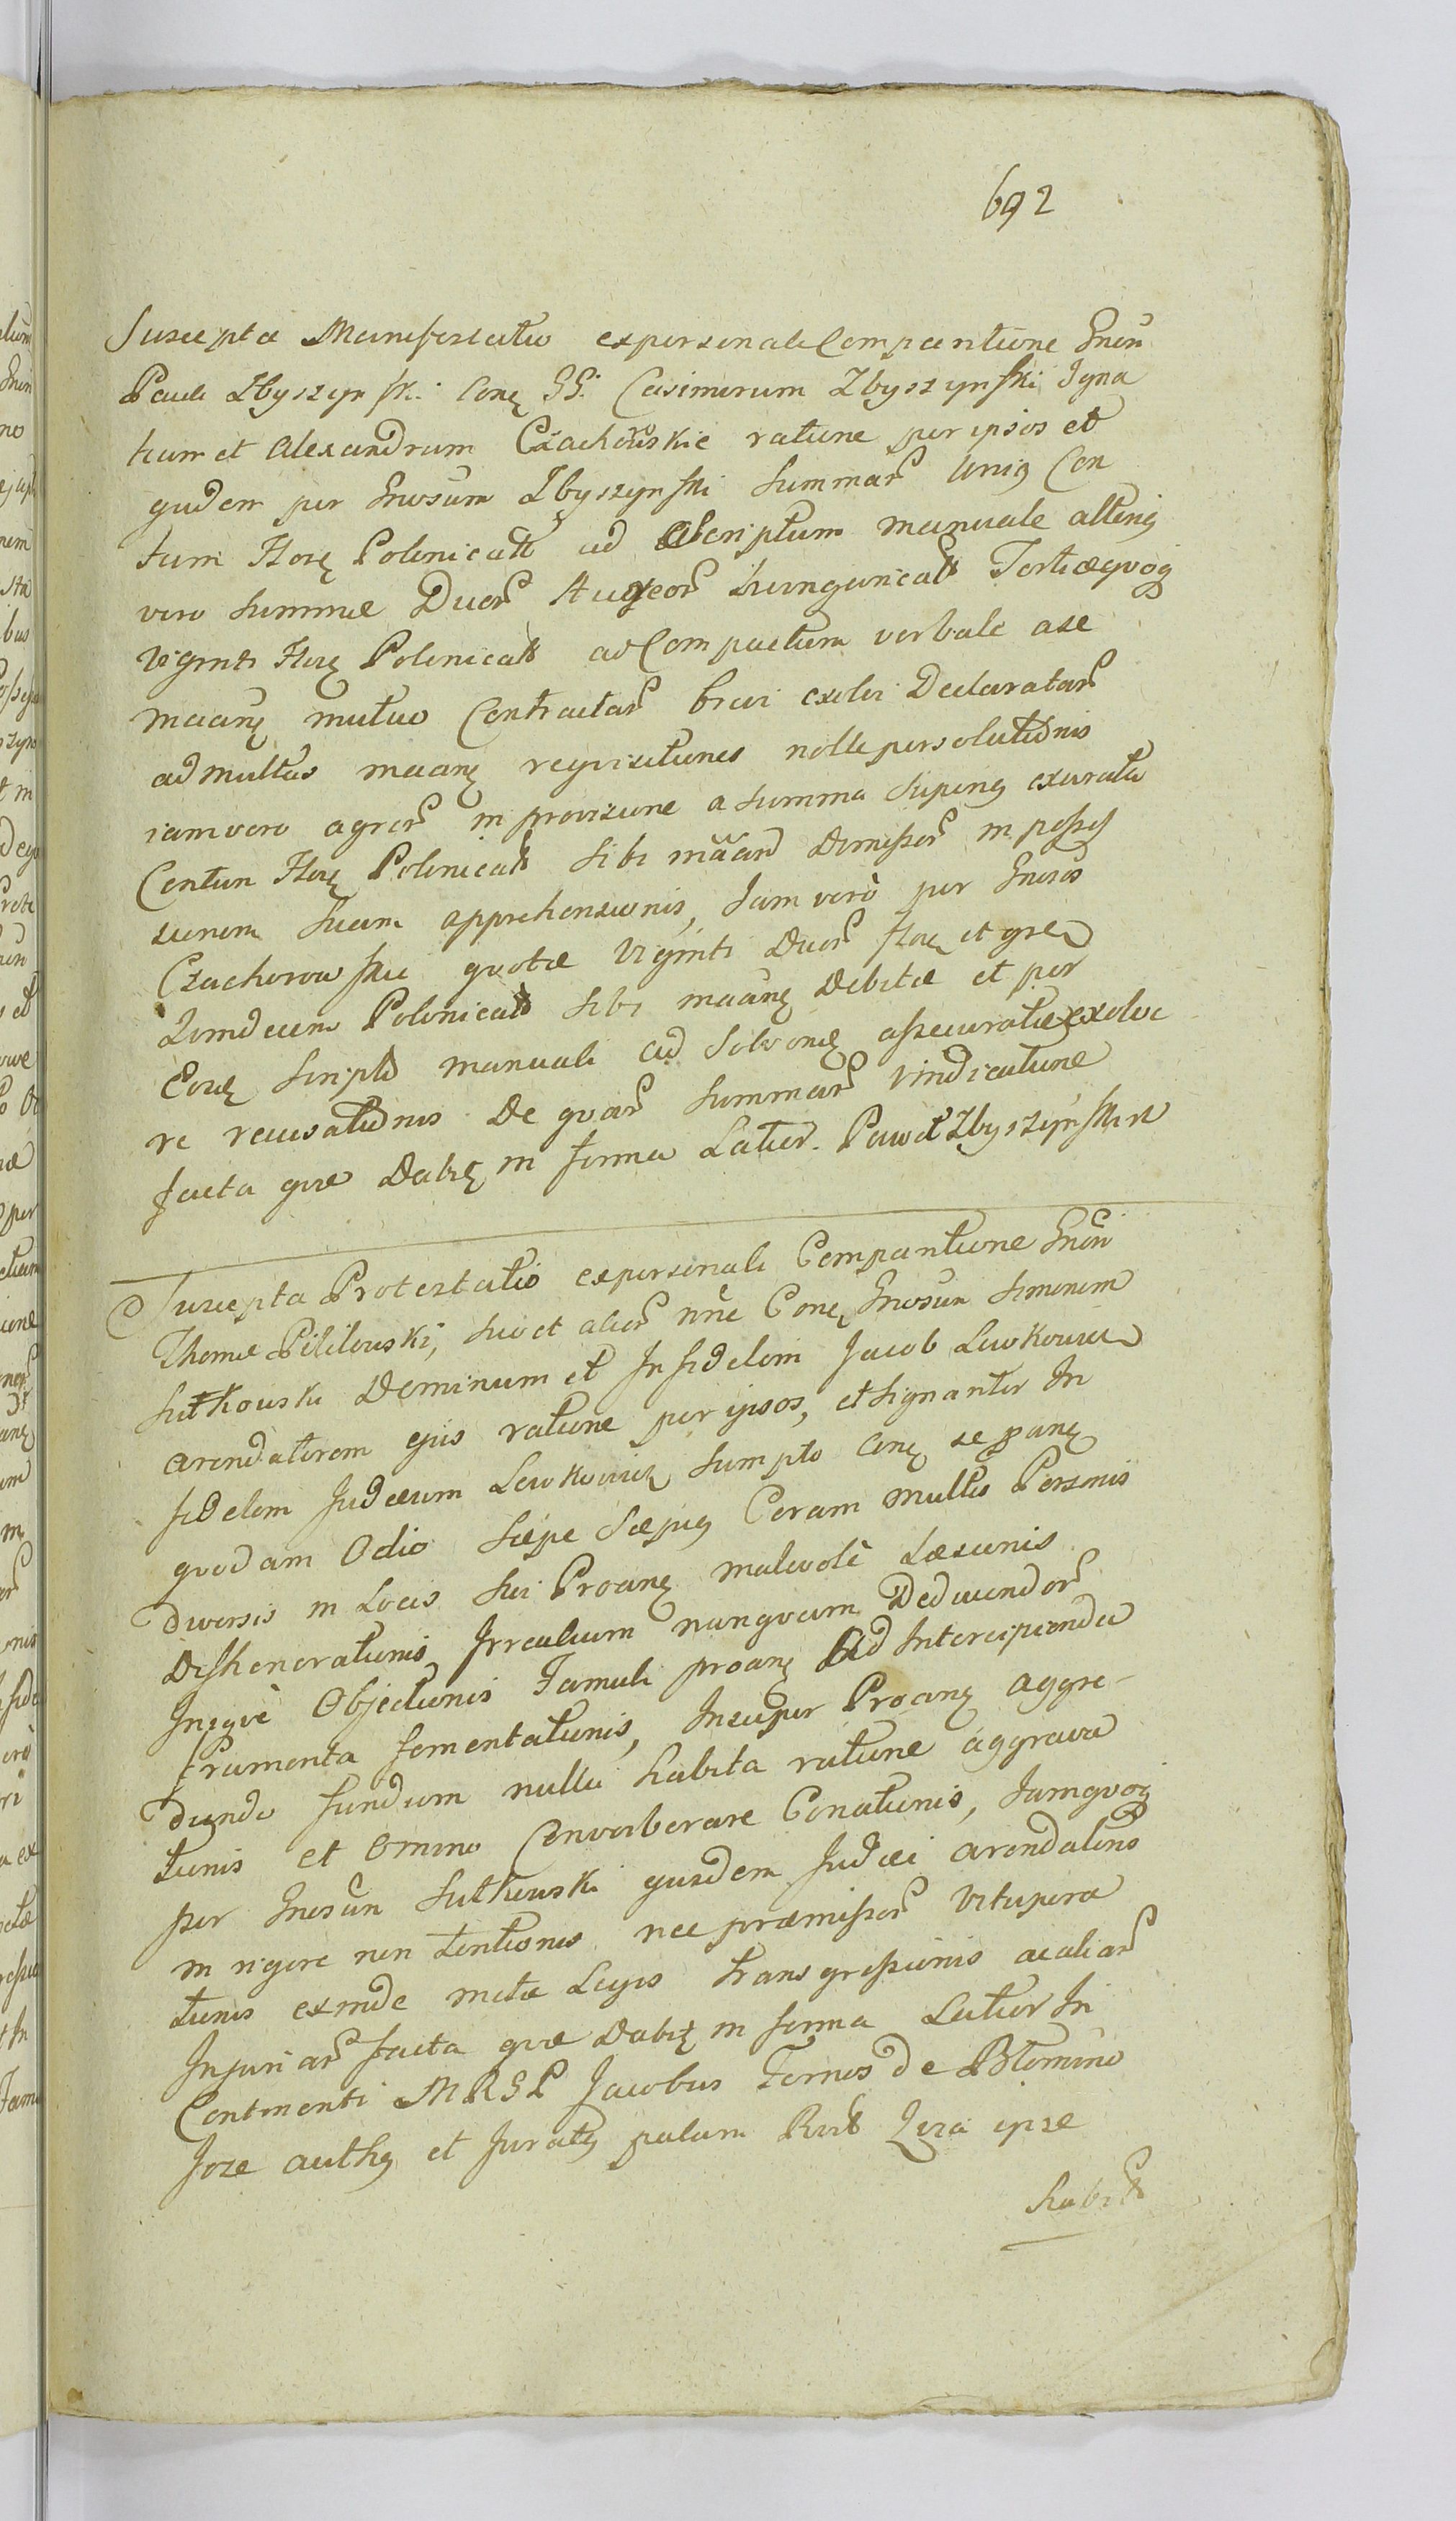 692
Suscepta Manifestatio ex personali Comparitione Gnen
Pauli Zbyszynski Conę GG. Casimirum Zbyszynski Igna
tium et Alexandrum Czachorowskie ratione per ipsos et
quidem per Gnosum Zbyszynski Summar Unig Cen
tum Florę Polonicalt ad Scriptum manuale alterig
vero Summæ Duor Aureor Hungaricalt Tertiæ quoq
Viginti Flore Polonicalt ad Compactum verbale a se
maanę mutuo Contractar brevi exolvi Declaratar
ad multas maanę requisitiones nolle persolutionis
iam vero agror in provisione a Summa Superig exarata
Centum Flore Polonicalt Sibi maand Dimissor in posses
sionem suam apprehensionis, Jam verò per Gnosos
Czachorowskie quotæ Viginti Duor Flore et gre
Quindecim Polonicalt sibi maanę Debitæ et per
Eosdę Scripto manuali ad Solvonę assecuratæ exolve
re recusationis De quar Summar Vindicatione
facta quæ Dabitę in forma Latiori. Paweł Zbyszynski
Suscepta Protestatio ex personali Comparitione Gnen
Thomæ Pililowski, suo et alior nne Conę Gnosum Simonem
Sutkowski Dominum et Infidelem Jacob Lewkowicz
arendatorem ejus ratione per ipsos, et signanter In
fidelem Judæum Lewkowicz sumpto Conę se panę
quodam Odio Sæpe Sæpig Coram multis Personis
diversis in Locis sui Proanę malevolè Læsionis
Dishonorationis Irrealium nunquam Deducendor
Insquè Objectionis Famuli proanę ad Intercipienda
frumenta fomentationis, Insuper Proanę aggre-
diendo fundum nulla habita ratione aggrava
tionis et Omnino Converberare Conationis, Jamquoq
per Gnosum Sutkowski ejusdem Judæi arendatoris
in rigore non tentionis nec præmissor Vitupera
tionis exinde metæ Legis transgressionis ac aliar
Injuriar facta quæ Dabitę in forma Latior In
Continenti MRSP Jacobus Tornos de Blomino
Joze authg et Juratg palam Recog Qsa ipse
habet